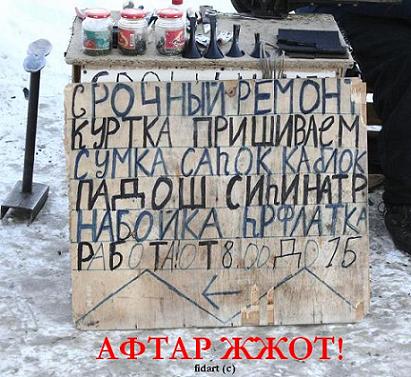 СРОЧНЫЙ РЕМОН
КУРТКА ПРИШИВАЕМ
СУМКА САПОК КАБЛОК
ПАДОШ СИПИНАТР
НАБОЙКА ПРФЛАТКА
РАБОТА!ОТ 8.00.ДО 15
АФТАР ЖЖОТ!
fidart (c)